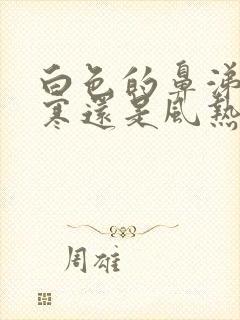 白色的鼻涕
寒還是風熱
周雄